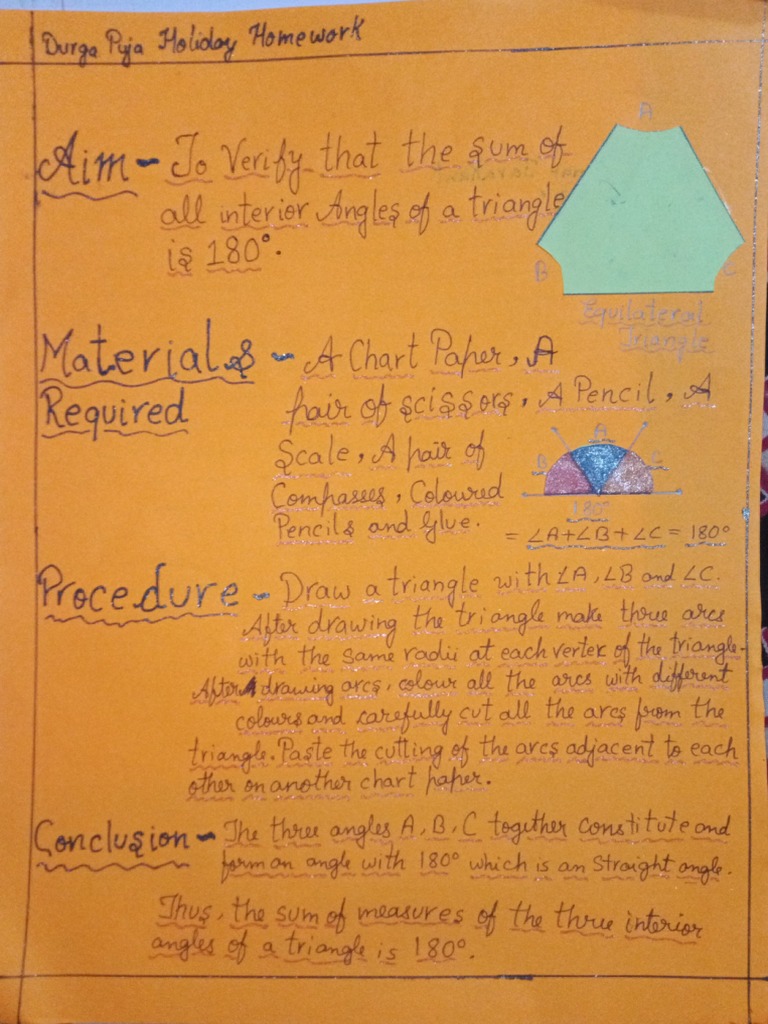 Durga Puja Holiday Homework
Aim - To Verify that the sum of
all interior Angles of a triangle
is 180°.
A
B
C
Equilateral
Triangle
Materials - A Chart Paper, A
Required pair of scissors, A Pencil, A
Scale, A pair of
Compasses, Coloured
Pencils and Glue.
A
B
C
180°
= ∠A+∠B+∠C = 180°
Procedure - Draw a triangle with ∠A, ∠B and ∠C.
After drawing the triangle make three arcs
with the same radii at each vertex of the triangle.
After drawing arcs, colour all the arcs with different
colours and carefully cut all the arcs from the
triangle. Paste the cutting of the arcs adjacent to each
other on another chart paper.
Conclusion - The three angles A, B, C together constitute and
form an angle with 180° which is an Straight angle.
Thus, the sum of measures of the three interior
angles of a triangle is 180°.